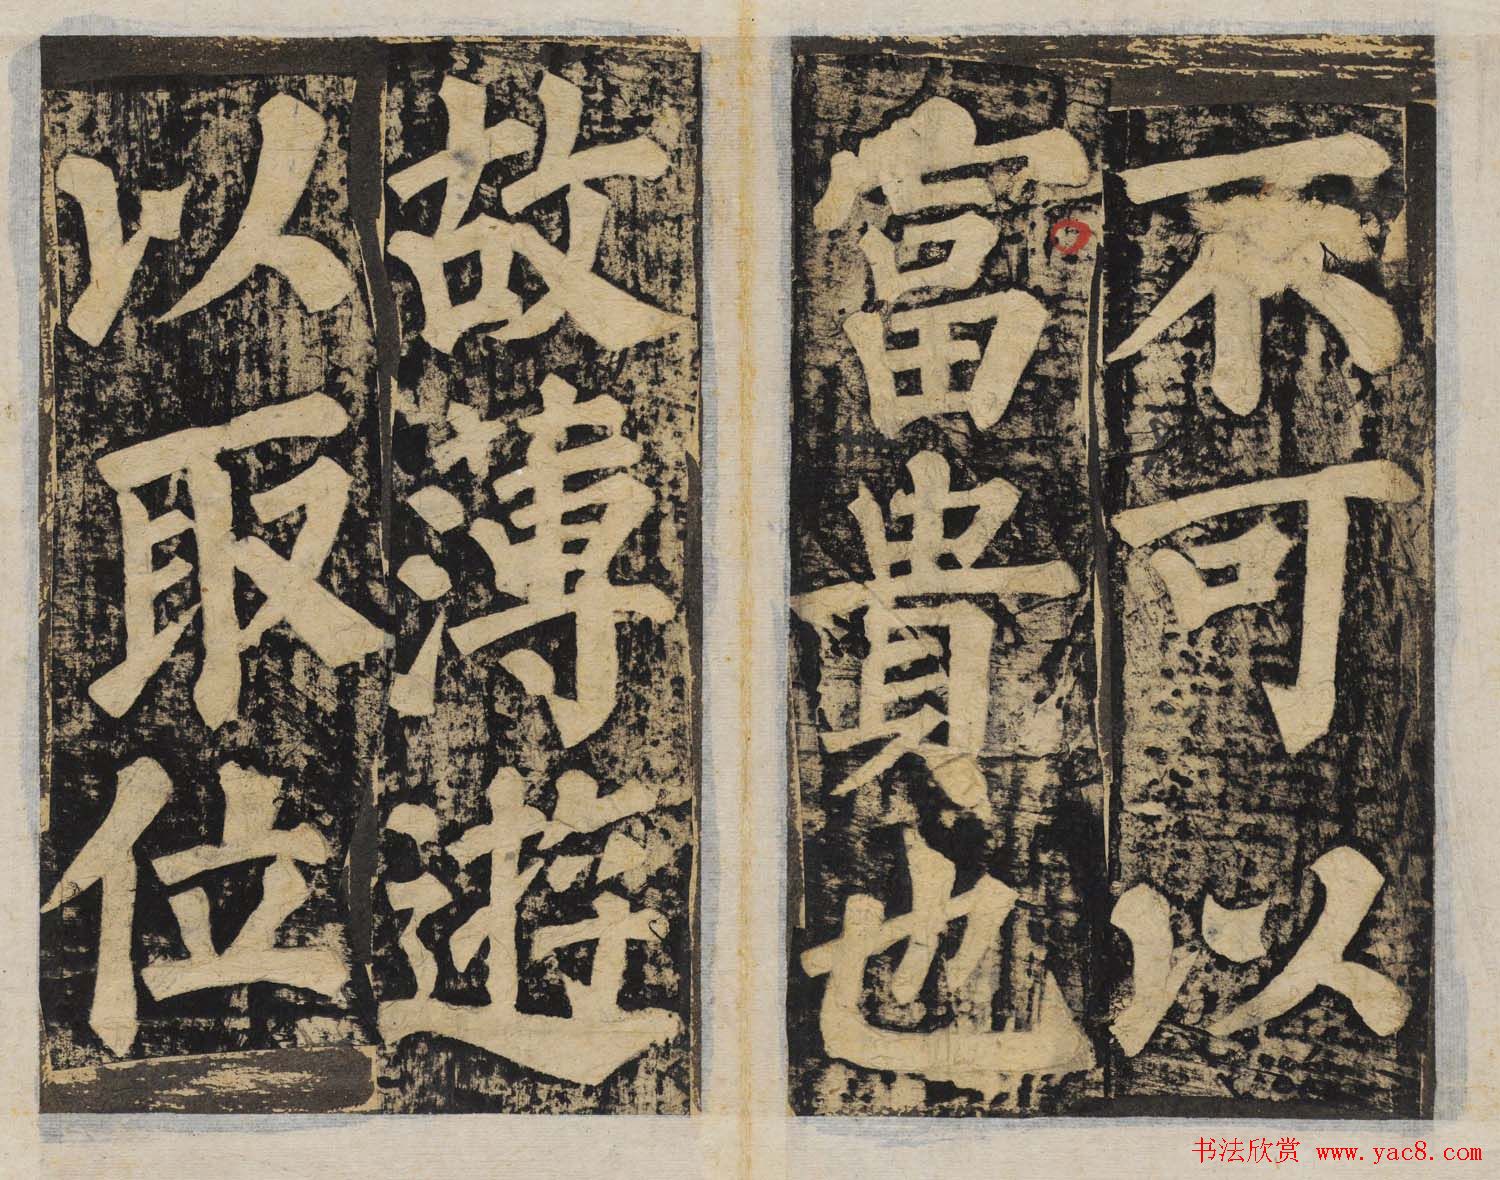 不可以
富貴也
故薄遊
以取位
书法欣赏 www.yac8.com